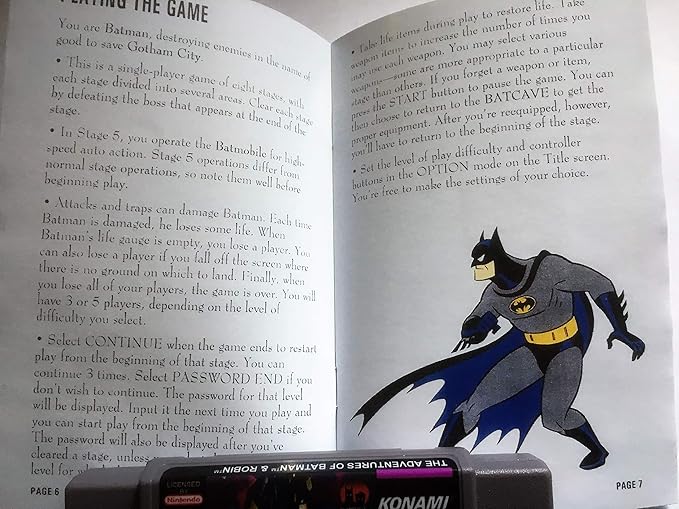 PLAYING THE GAME
You are Batman, destroying enemies in the name of
good to save Gotham City.
• This is a single-player game of eight stages, with
each stage divided into several areas. Clear each stage
by defeating the boss that appears at the end of the
stage.
• In Stage 5, you operate the Batmobile for high-
speed auto action. Stage 5 operations differ from
normal stage operations, so note them well before
beginning play.
• Attacks and traps can damage Batman. Each time
Batman is damaged, he loses some life. When
Batman's life gauge is empty, you lose a player. You
can also lose a player if you fall off the screen where
there is no ground on which to land. Finally, when
you lose all of your players, the game is over. You will
have 3 or 5 players, depending on the level of
difficulty you select.
• Select CONTINUE when the game ends to restart
play from the beginning of that stage. You can
continue 3 times. Select PASSWORD END if you
don't wish to continue. The password for that level
will be displayed. Input it the next time you play and
you can start play from the beginning of that stage.
The password will also be displayed after you've
cleared a stage, unless
level for
PAGE 6
• Take life items during play to restore life. Take
weapon items to increase the number of times you
may use each weapon. You may select various
weapons—some are more appropriate to a particular
stage than others. If you forget a weapon or item,
press the START button to pause the game. You can
then choose to return to the BATCAVE to get the
proper equipment. After you're reequipped, however,
you'll have to return to the beginning of the stage.
• Set the level of play difficulty and controller
buttons in the OPTION mode on the Title screen.
You're free to make the settings of your choice.
PAGE 7
THE ADVENTURES OF BATMAN™ & ROBIN™
LICENSED BY
Nintendo
KONAMI